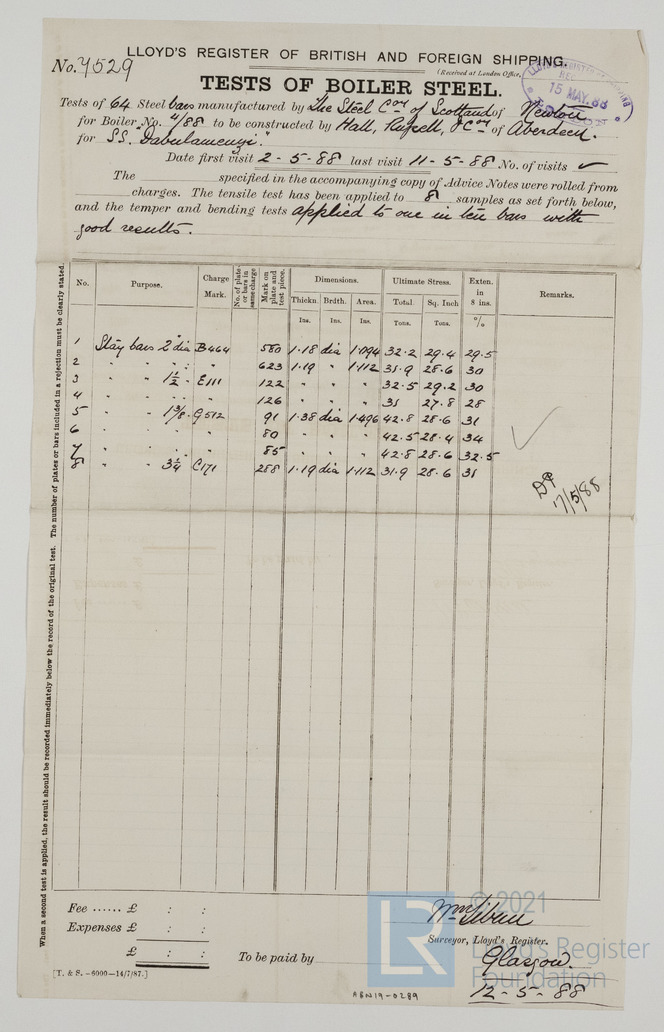 LLOYD'S REGISTER OF BRITISH AND FOREIGN SHIPPING.
No. 7529
(Received at London Office,
15 MAY. 88
TESTS OF BOILER STEEL.
Tests of 64 Steel bars manufactured by The Steel Coy of Scotland of Newton
for Boiler No. 4/88 to be constructed by Hall, Russell, & Coy of Aberdeen.
for S.S. "Dabulamenzi".
Date first visit 2-5-88 last visit 11-5-88 No. of visits ✓
The specified in the accompanying copy of Advice Notes were rolled from
charges. The tensile test has been applied to 8 samples as set forth below,
and the temper and bending tests applied to one in ten bars with
good results.
No. Purpose. Charge Mark. No. of plate or bars in same charge Mark on plate and test piece. Dimensions. Ultimate Stress. Exten. in 8 ins. Remarks.
Thickn. Brdth. Area. Total. Sq. Inch
Ins. Ins. Ins. Tons. Tons. %
1 Stay bars 2" dia B464 580 1·18 dia 1·094 32·2 29·4 29·5
2 " " " " 623 1·19 " 1·112 31·9 28·6 30
3 " " 1½ " E111 122 " " " 32·5 29·2 30
4 " " " " " 126 " " " 31 27·8 28
5 " " 1⅜ " G512 91 1·38 dia 1·496 42·8 28·6 31
6 " " " " 80 " " " 42·5 28·4 34
7 " " " " " 85 " " " 42·8 28·6 32·5
8 " " 3¼ C171 288 1·19 dia 1·112 31·9 28·6 31
17/5/88
When a second test is applied, the result should be recorded immediately below the record of the original test. The number of plates or bars included in a rejection must be clearly stated.
Fee ...... £ : :
Expenses £ : :
£ : :
To be paid by
Surveyor, Lloyd's Register.
Glasgow.
12-5-88
[T. & S. -6000-14/7/87.]
ABN19-0289
LR
© 2021
Lloyd's Register
Foundation